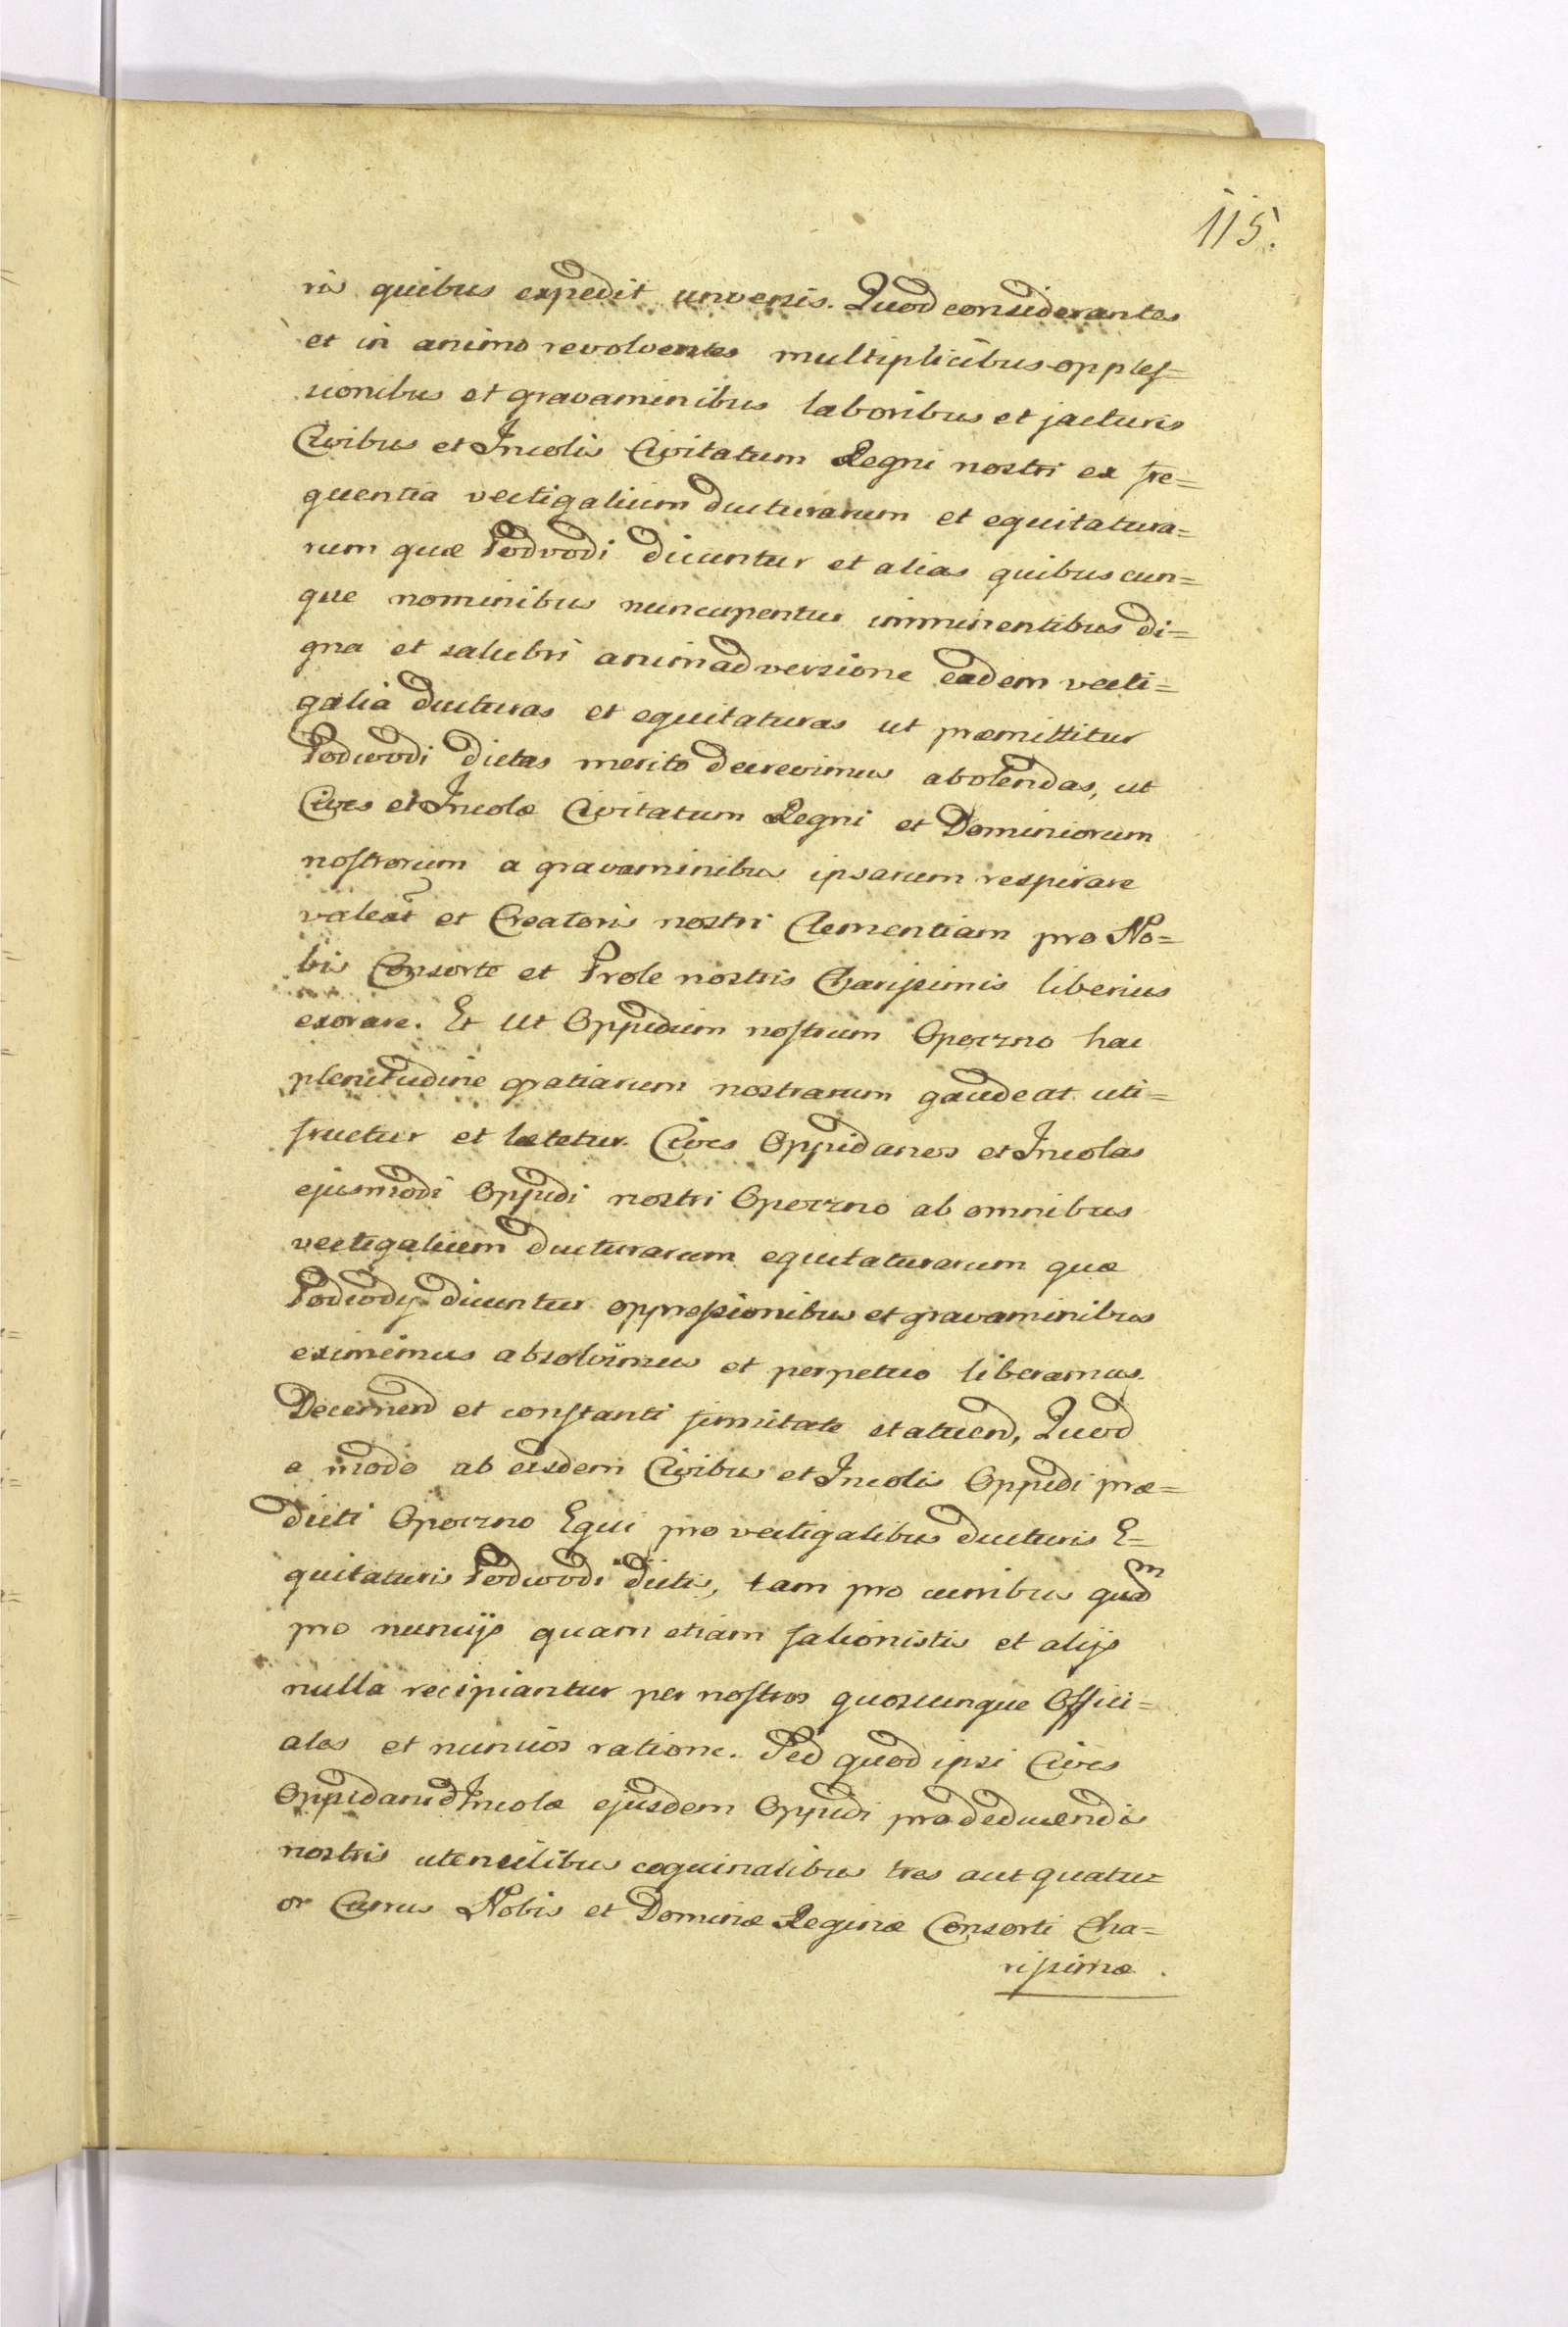 115.
ris quibus expedit unversis. Quod considerantes
et in animo revolventes multiplicibus oppres=
sionibus et gravaminibus laboribus et jacturis
Civibus et Incolis Civitatum Regni nostri ex fre=
quentia vectigalium ducturarum et equitatura=
rum quæ Podvodi dicuntur et alias quibuscun=
que nominibus nuncupentur imminentibus di=
gna et salubri animadversione eadem vecti=
galia ducturas et equitaturas ut præmittitur
Podwodi dictas merito decrevimus abolendas, ut
Cives et Incolæ Civitatum Regni et Dominiorum
nostrorum a gravaminibus ipsarum respirare
valeāt et Creatoris nostri Clementiam pro No=
bis Consorte et Prole nostris Charissimis liberius
exorare. Et ut Oppidum nostrum Opoczno hac
plenitudine gratiarum nostrarum gaudeat uti=
fruetur et lætetur. Cives Oppidanos et Incolas
ejusmodi Oppidi nostri Opoczno ab omnibus
vectigalium ducturarum equitaturarum quæ
Podwody dicuntur oppressionibus et gravaminibus
eximimus absolvimus et perpetuo liberamus.
Decernend et constanti firmitate statuend, Quod
a modo ab eisdem Civibus et Incolis Oppidi præ=
dicti Opoczno Equi pro vectigalibus ducturis E=
quitaturis Podwodi dictis, tam pro curribus quam
pro nuncijs quam etiam falconistis et alijs
nulla recipiantur per nostros quoscunque Offici=
ales et nuncios ratione. Sed quod ipsi Cives
Oppidani Incolæ ejusdem Oppidi pro deducendis
nostris utensilibus coquinalibus tres aut quatu=
or Currus Nobis et Dominæ Reginæ Consorti Cha=
rissimæ.